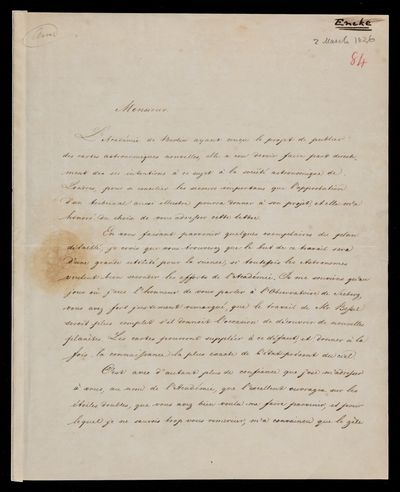 Encke
2 March 1826
84
Monsieur
L'Académie de Berlin ayant conçu le projet de publier
des cartes astronomiques nouvelles, elle a cru devoir faire part directe-
ment de ses intentions à ce sujet à la société astronomique de
Londres, pour recueillir les secours importans que l'approbation
d'un tribunal aussi illustre pourra donner à son projet; et elle m'a
honoré du choix de vous adresser cette lettre.
En vous faisant parvenir quelques exemplaires du plan
détaillé, je crois que vous trouverez que le but de ce travail sera
d'une grande utilité pour la science, si toutefois les Astronomes
veulent bien seconder les efforts de l'Académie. Je me souviens qu'au
jour où j'eus l'honneur de vous parler à l'Observatoire de Seeberg,
vous avez fort justement remarqué, que le travail de Mr Bessel
seroit plus complet s'il donnoit l'occasion de découvrir de nouvelles
planètes. Les cartes peuvent suppléer à ce défaut, et donner à la
fois la connaissance la plus exacte de l'état présent du ciel.
C'est avec d'autant plus de confiance que j'ose m'adresser
à vous, au nom de l'Académie, que l'excellent ouvrage sur les
étoiles doubles, que vous avez bien voulu me faire parvenir, et pour
lequel je ne saurois trop vous remercier, m'a convaincu que le zèle